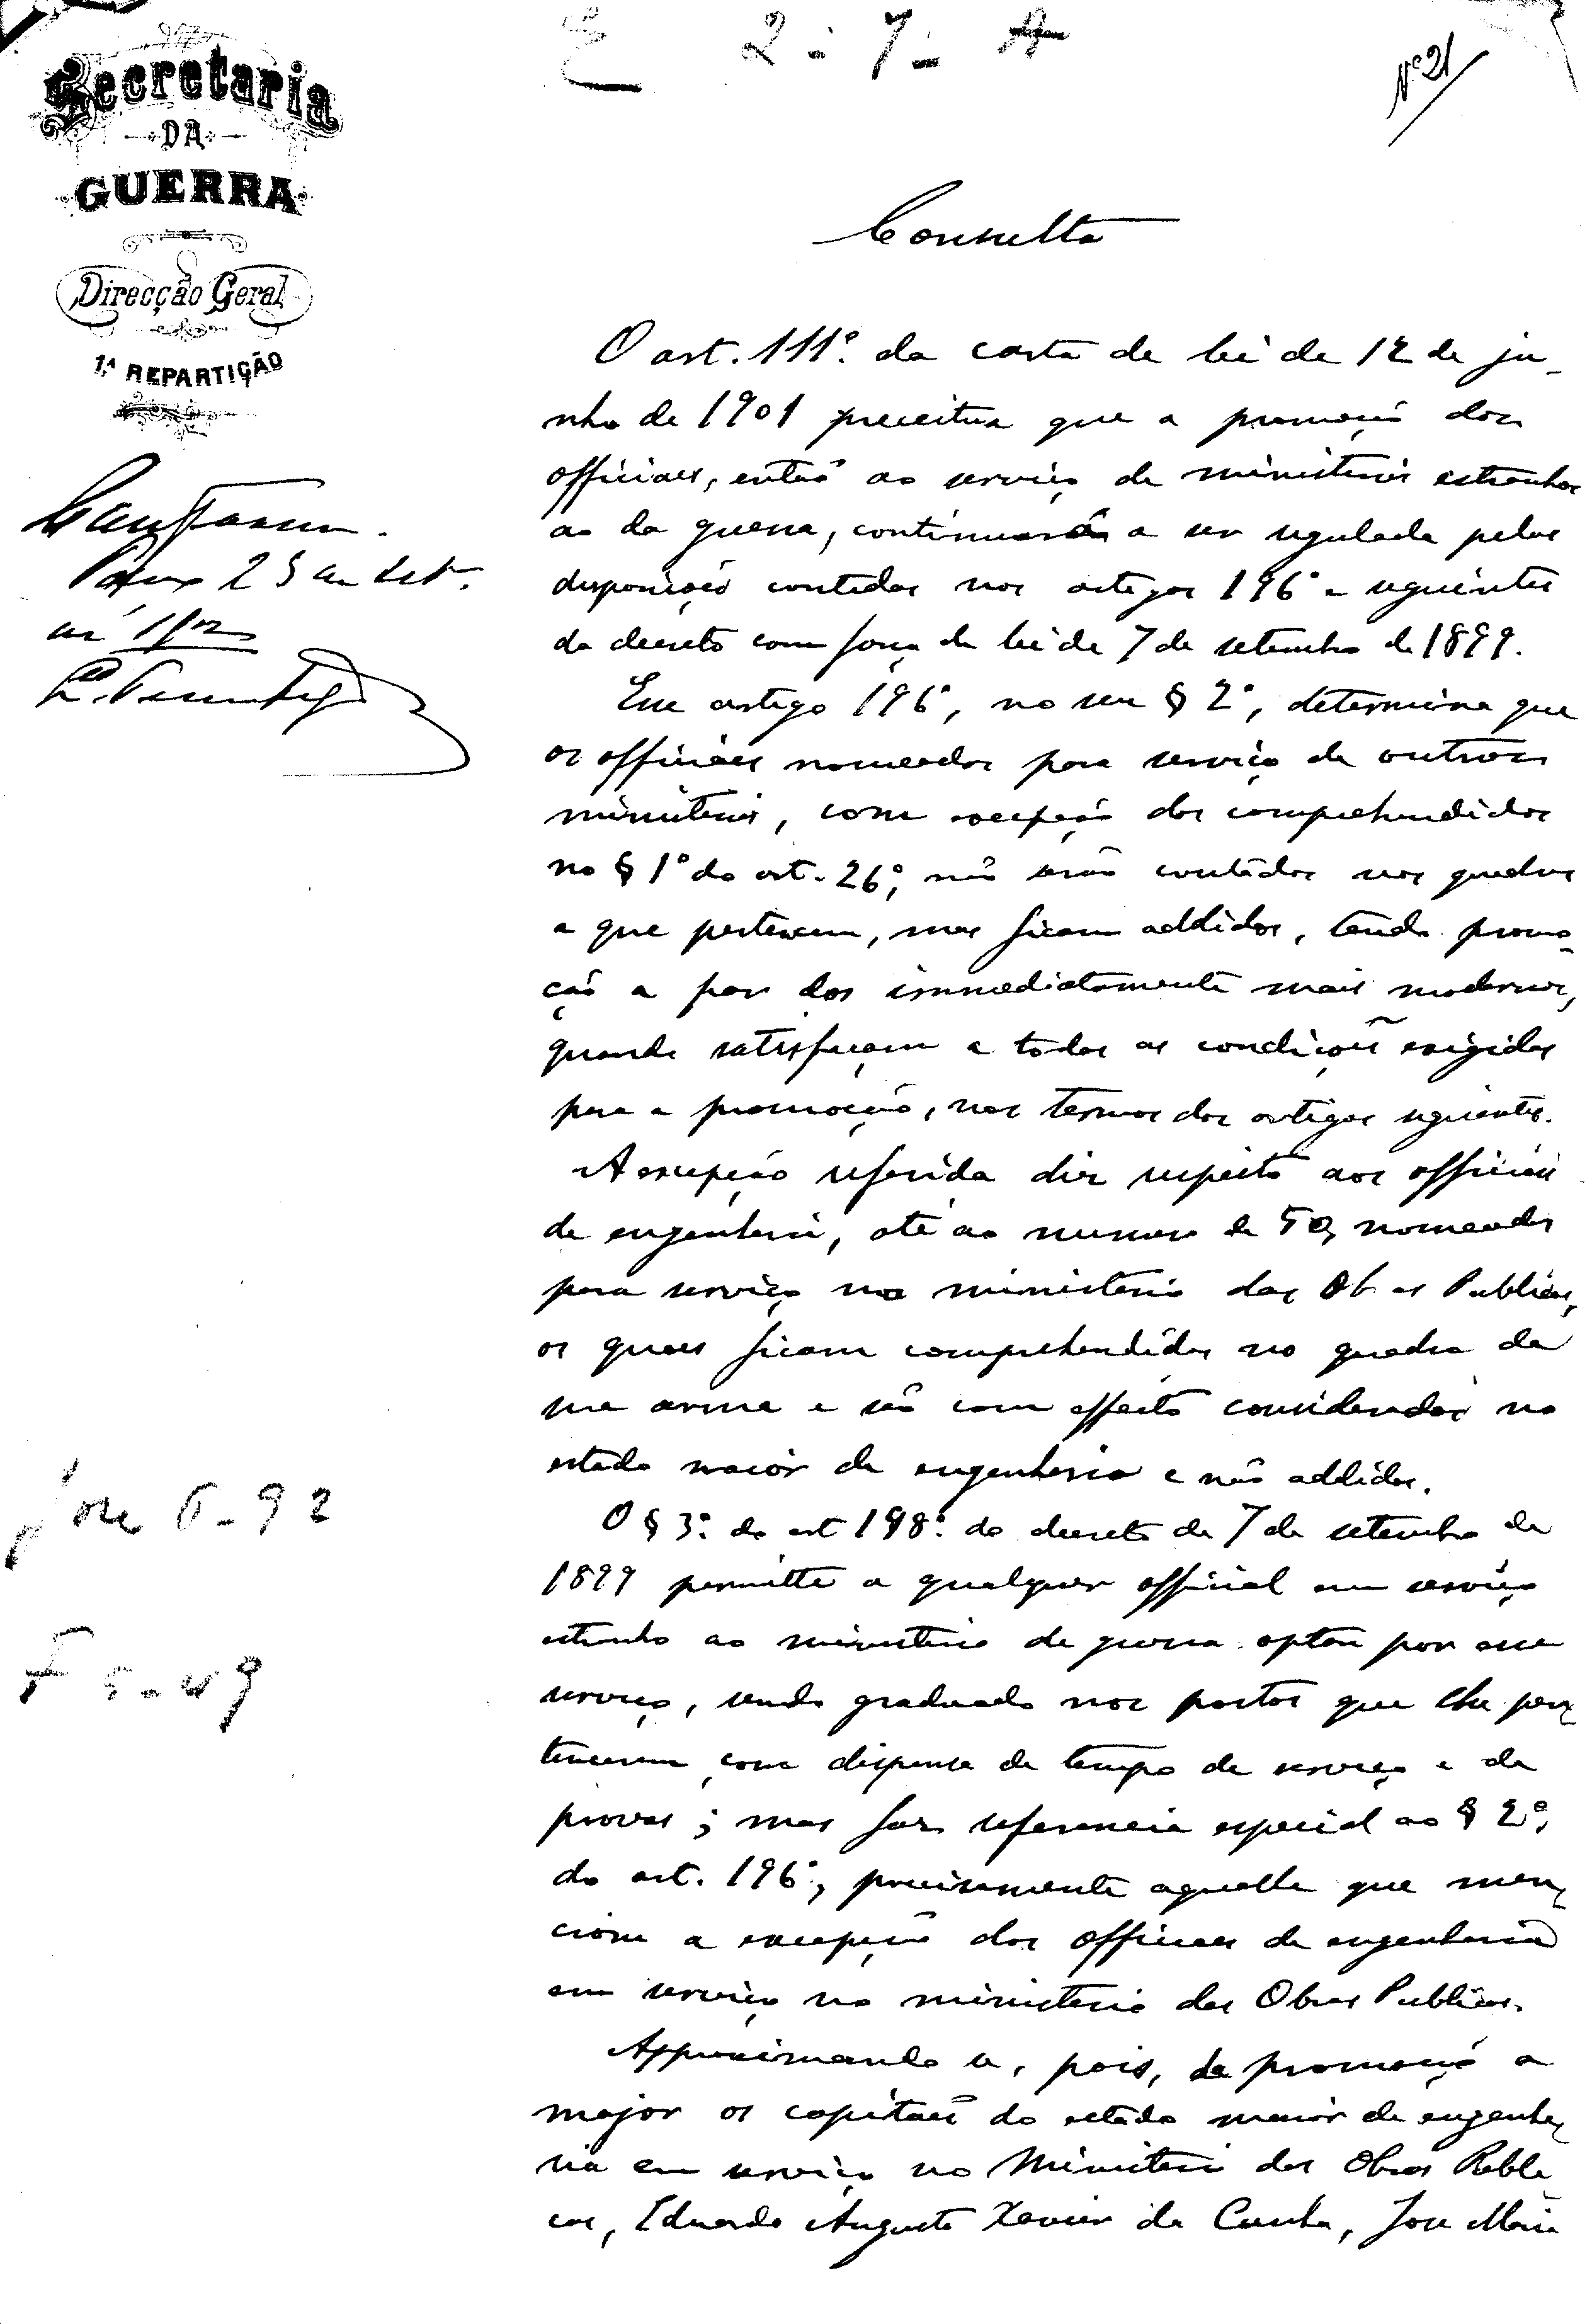 E 2-7-A
Nº 21
Secretaria
DA
GUERRA
Direcção Geral
1.ª REPARTIÇÃO
Consulta
O art. 111º. da carta de lei de 12 de ju-
nho de 1901 preceitua que a promoção dos
officiaes, então ao serviço de ministerios estranhos
ao da guerra, continuará a ser regulada pelas
disposições contidas nos artigos 196º e seguintes
do decreto com força de lei de 7 de setembro de 1899.
Esse artigo 196º, no seu § 2º, determina que
os officiaes nomeados para serviço de outros
ministerios, com excepção dos comprehendidos
no § 1º do art. 26º, não serão contados nos quadros
a que pertencem, mas ficam addidos, tendo promo-
ção a par dos immediatamente mais modernos,
quando satisfaçam a todas as condições exigidas
para a promoção, nos termos dos artigos seguintes.
A excepção referida diz respeito aos officiaes
de engenheria, até ao numero de 50, nomeados
para serviço no ministerio das Obras Publicas,
os quaes ficam comprehendidos no quadro da
sua arma e são com effeito considerados no
estado maior de engenheria e não addidos.
O § 3º. do art 198º. do decreto de 7 de setembro de
1899 permitte a qualquer official em serviço
estranho ao ministerio da guerra optar por esse
serviço, sendo graduado nos postos que lhe per-
tencerem, com dispensa de tempo de serviço e de
provas; mas faz referencia especial ao § 2º.
do art. 196º, precisamente aquelle que men-
ciona a excepção dos officiaes de engenheria
em serviço no ministerio das Obras Publicas.
Approximando se, pois, da promoção a
major os capitães do estado maior de engenhe-
ria em serviço no Ministerio das Obras Publi-
cas, Eduardo Augusto Xavier da Cunha, José Maria